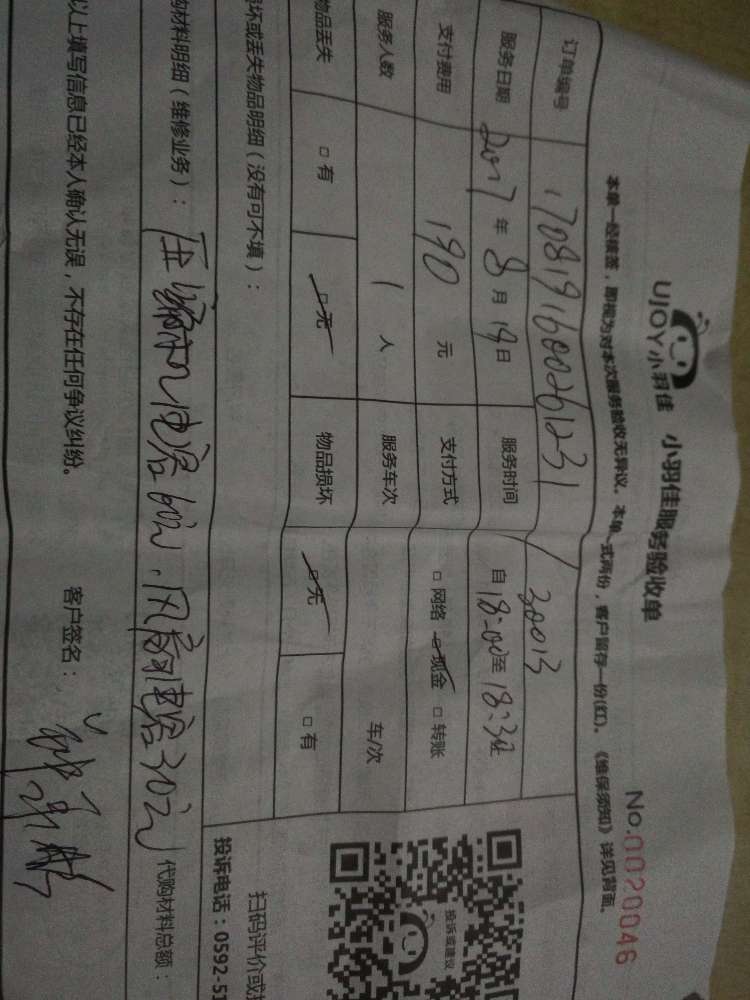 UJOY小羽佳 小羽佳服务验收单
No.0020046
本单一经接签，即视为对本次服务验收无异议。本单一式两份，客户留存一份(红)。《维保须知》详见背面。
订单编号 1708191600261231 / 30013
服务日期 2017年8月19日 服务时间 自18:00至18:30
支付费用 190元 支付方式 □网络 □现金 □转账
服务人数 1人 服务车次 车/次
物品丢失 □有 □无 物品损坏 □无 □有
损坏或丢失物品明细（没有可不填）：
购材料明细（维修业务）：压缩机电容60元、风扇电容30元 代购材料总额：
以上填写信息已经本人确认无误，不存在任何争议纠纷。 客户签名：
投诉或建议
扫码评价或
投诉电话：0592-51